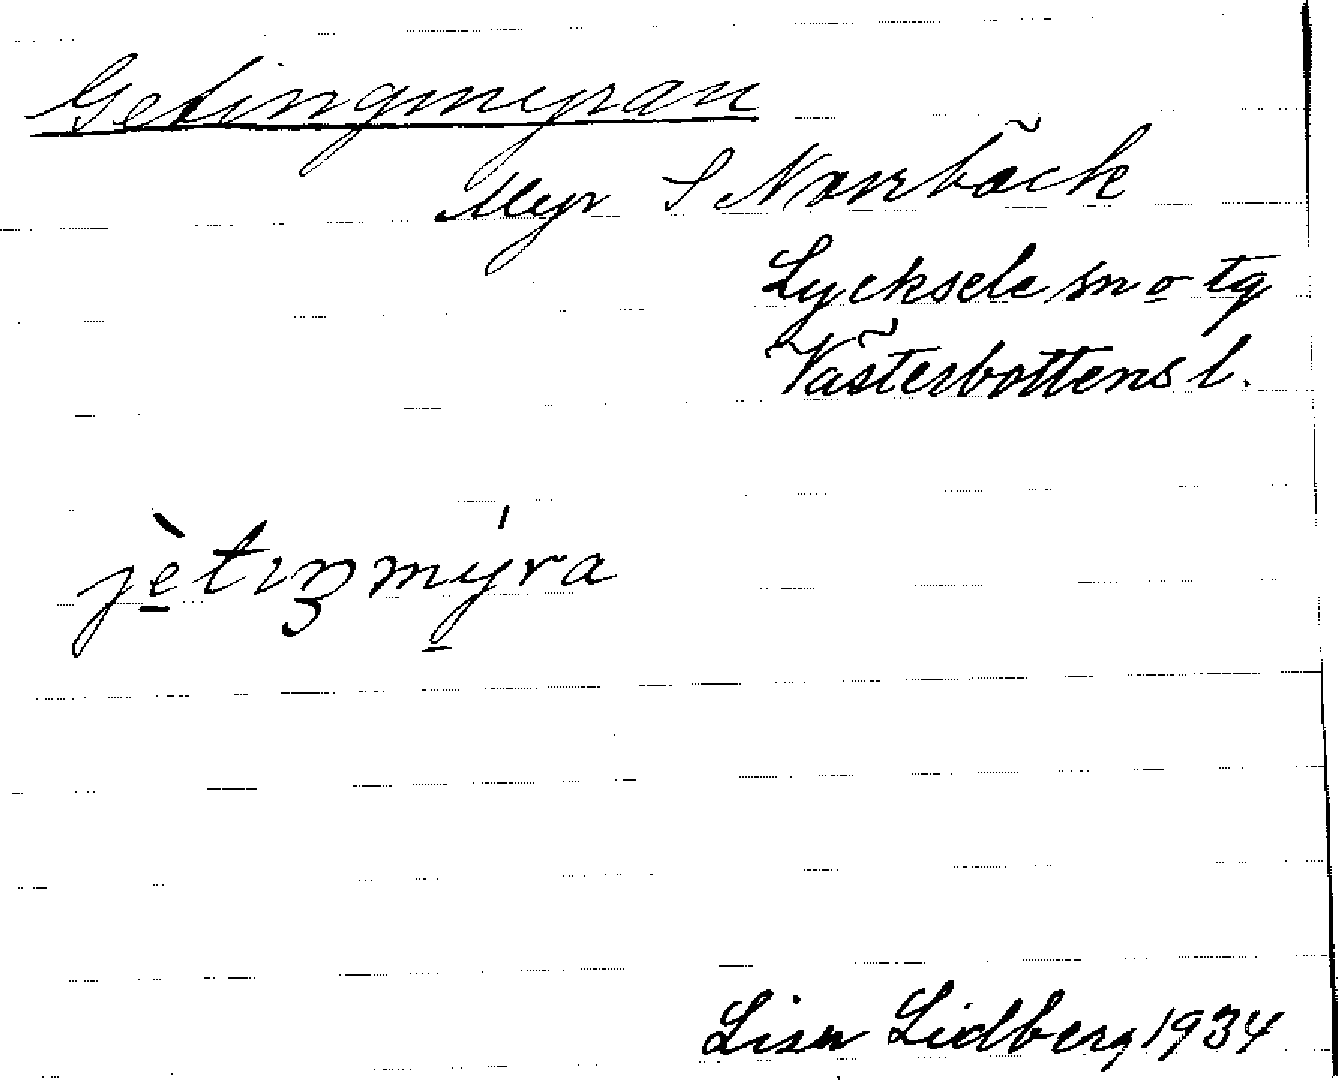 Getingmyran
Myr S Norrbäck
Lycksele sn o tg
Västerbottens l.
jètıŋmýra
Lisa Lidberg 1934